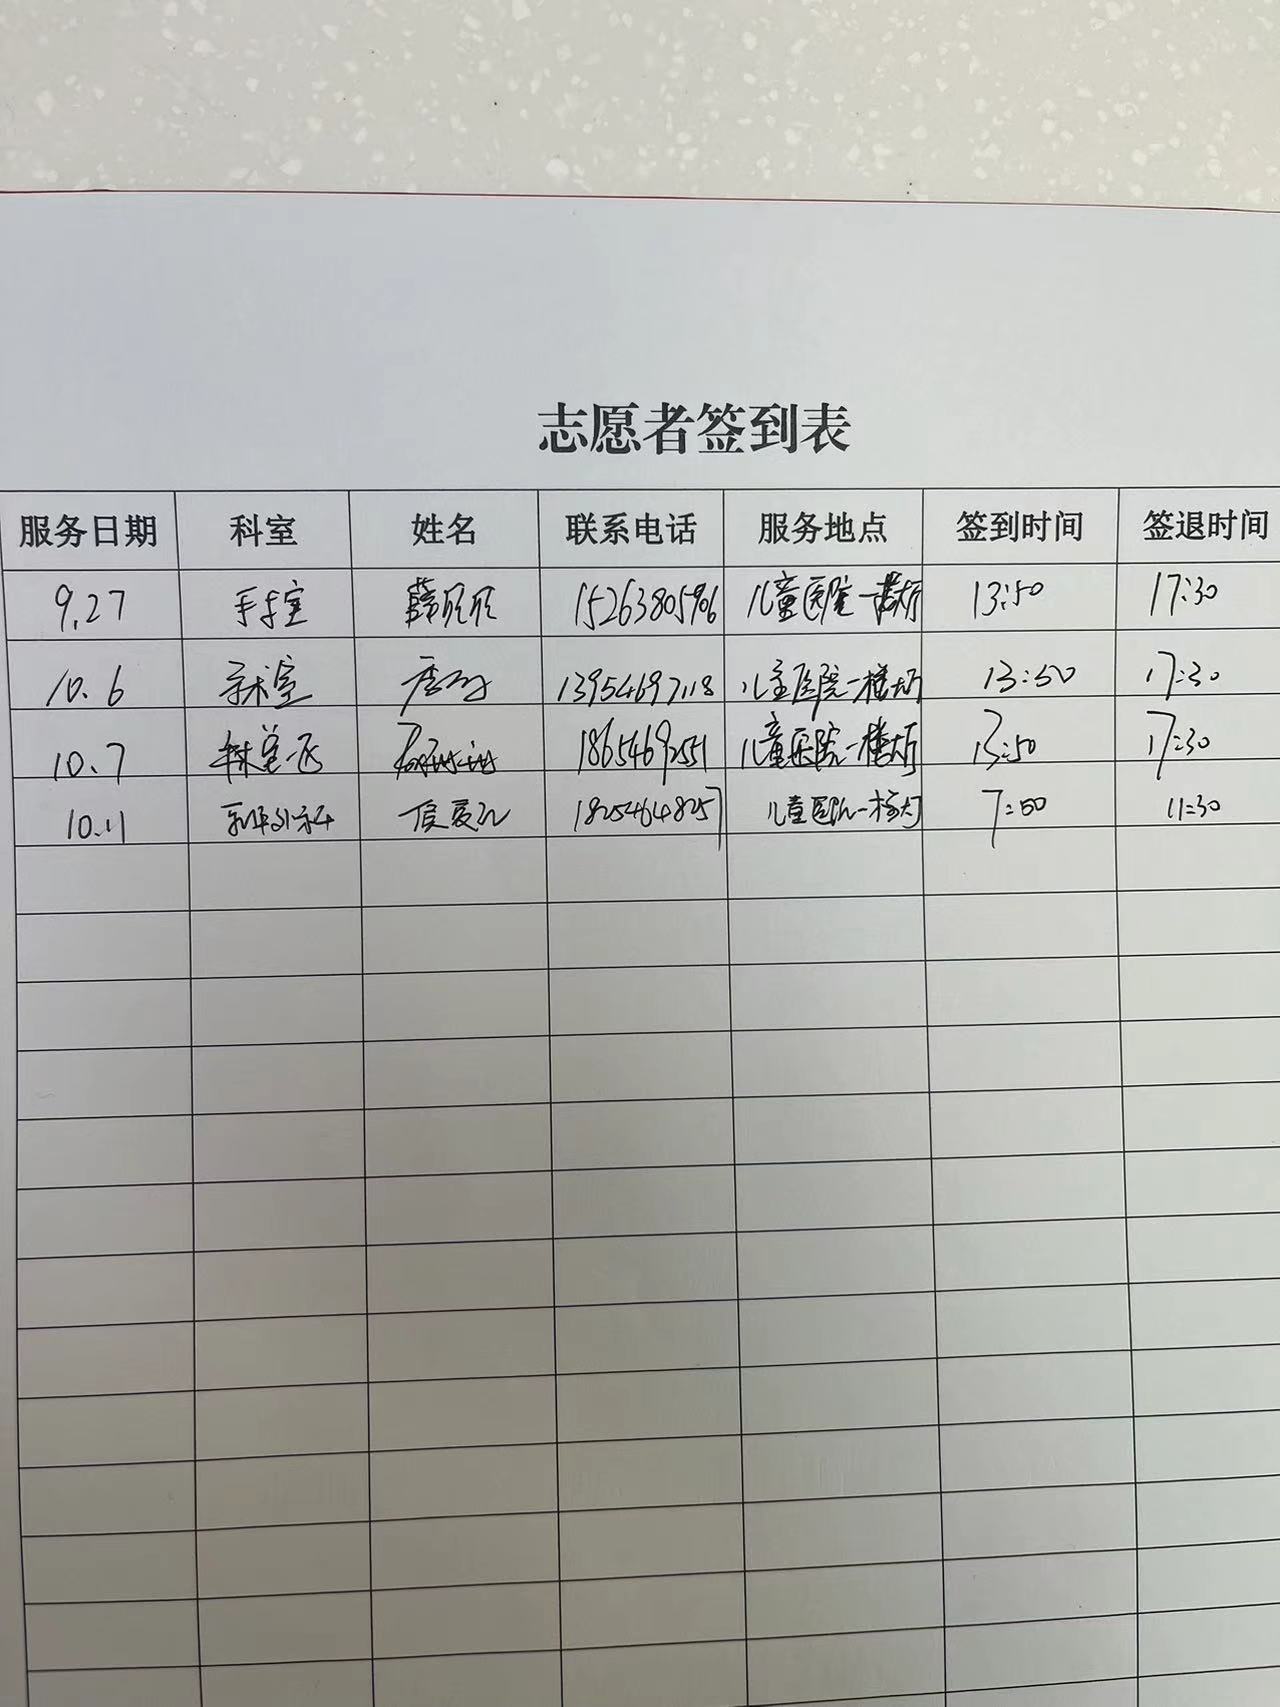 志愿者签到表
服务日期 科室 姓名 联系电话 服务地点 签到时间 签退时间
9.27 手术室 薛 15263805906 儿童医院一楼大厅 13:50 17:30
10.6 手术室 13954697118 儿童医院一楼大厅 13:50 17:30
10.7 18654692551 儿童医院一楼大厅 13:50 17:30
10.11 外科 18254648257 儿童医院一楼大厅 7:50 11:30